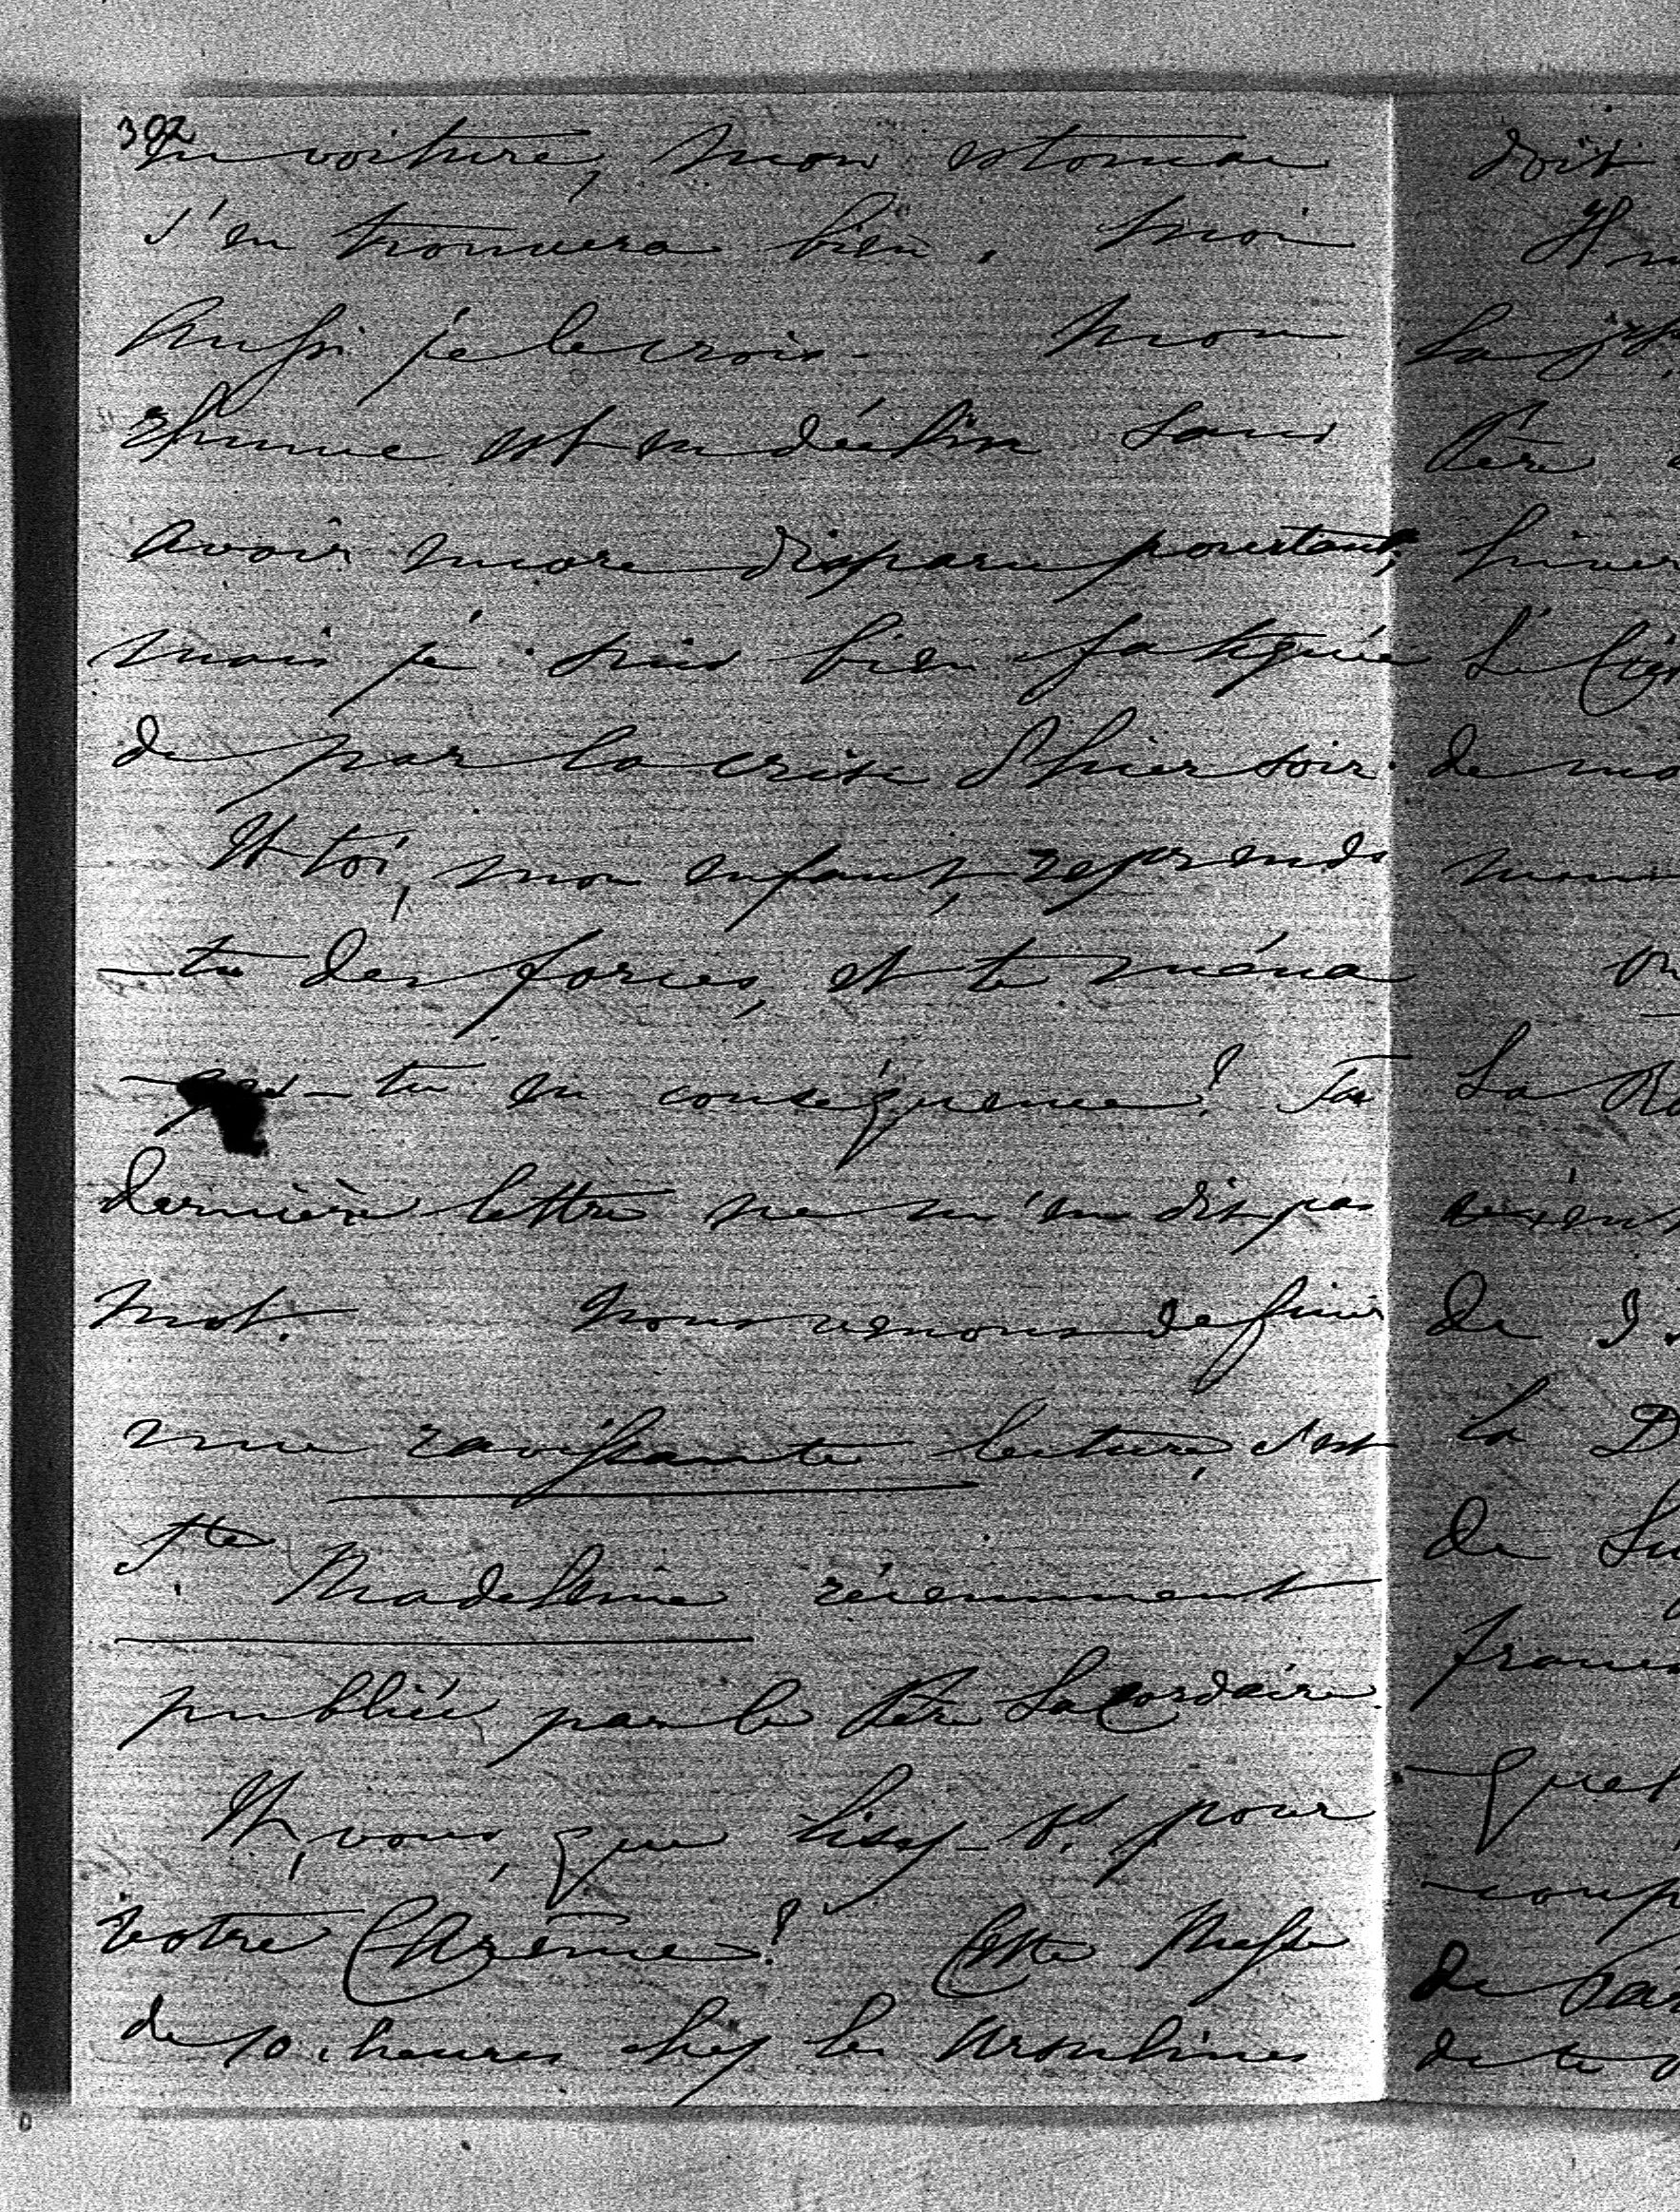 392
en voiture, mon estomac
s'en trouvera bien. Moi
aussi je le crois. Mon
rhume est en déclin sans
avoir encore disparu pourtant,
mais je suis bien fatiguée
de par la crise d'hier soir.
Et toi, mon enfant, reprends
-tu des forces, et te ména
-ges-tu en conséquence? Ta
dernière lettre ne m'en dit pas
mot. Nous venons de finir
une ravissante lecture, c'est
Ste Madeleine récemment
publiée par le Père Lacordaire.
Et, vous, que lisez-vs pour
votre Carême? Cette Messe
de 10 heures chez les Ursulines
doit
La
Père
hiver
de
La
de
la
de
de
de te